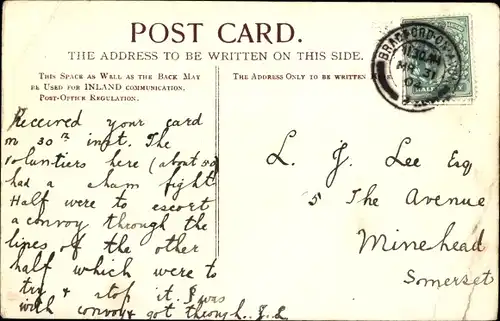 POST CARD.
THE ADDRESS TO BE WRITTEN ON THIS SIDE.
THIS SPACE AS WELL AS THE BACK MAY
BE USED FOR INLAND COMMUNICATION.
POST-OFFICE REGULATION.
THE ADDRESS ONLY TO BE WRITTEN
BRADFORD-ON-AVON
HALF
Received your card
on 30th inst. The
voluntiers here (about 50)
had a sham fight
Half were to escort
a convoy through the
lines of the other
half which were to
try & stop it. I was
with convoy & got through. J. L
L. J. Lee Esq
The Avenue
Minehead
Somerset